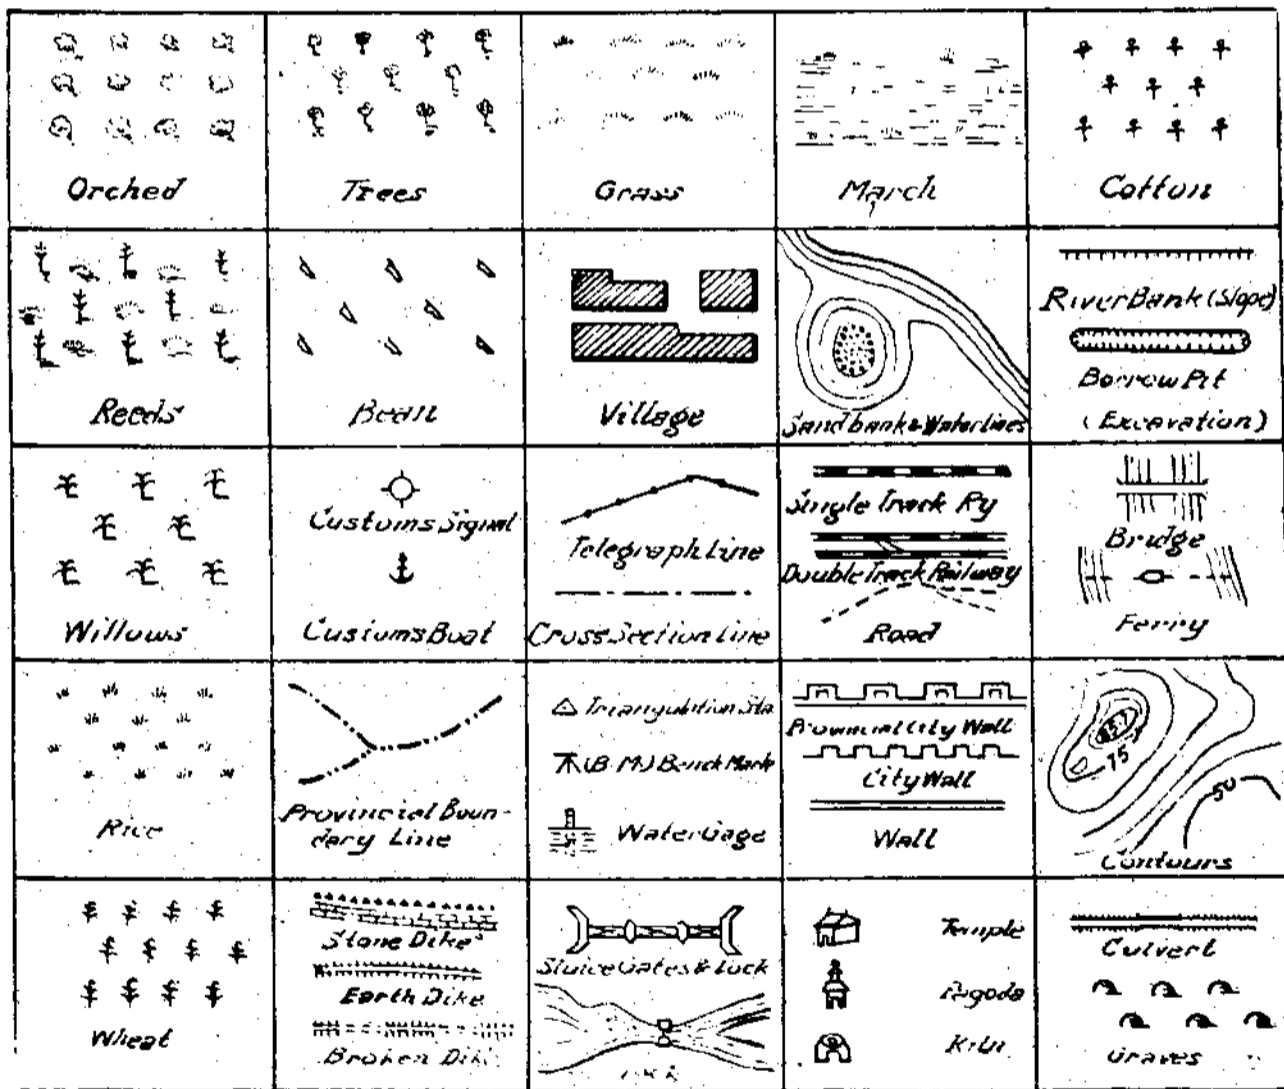 Orched
Trees
Grass
March
Cotton
Reeds
Bean
Village
Sandbank & Waterlines
River Bank (Slope)
Borrow Pit
(Excavation)
Willows
Customs Signal
Customs Boat
Telegraph Line
Cross Section Line
Single Track Ry
Double Track Railway
Road
Bridge
Ferry
Rice
Provincial Boun-
dary Line
Triangulation Sta
(B.M.) Bench Mark
Water Gage
Provincial City Wall
City Wall
Wall
75
50
Contours
Wheat
Stone Dike
Earth Dike
Broken Dik
Sluice Gates & Lock
Temple
Pagoda
Kiln
Culvert
Graves